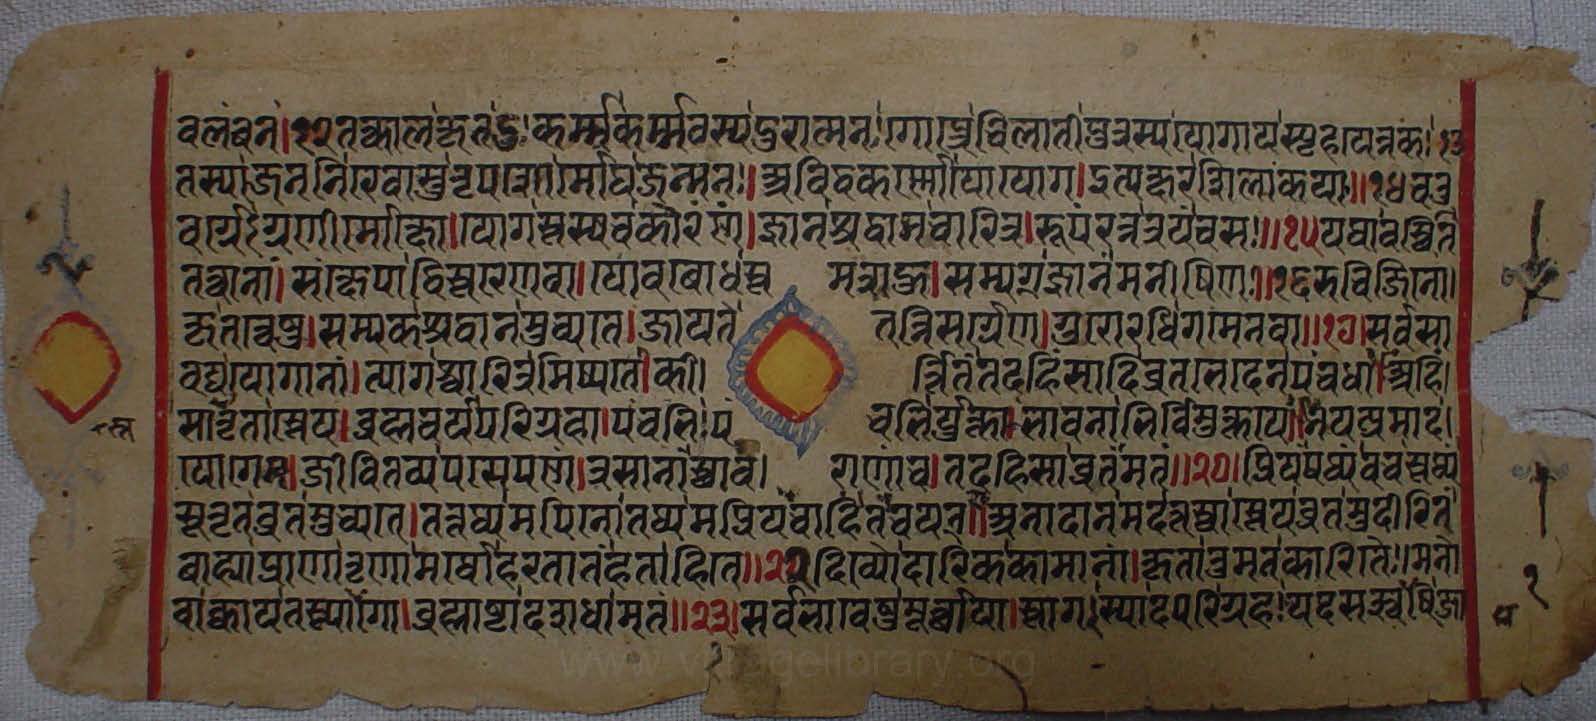 वलंबनं।१२ तत्कालकृतदुःकर्म्मकर्म्मठस्य दुरात्मनः। गोप्त्रे चिलातीपुत्रस्य योगाय स्पृहयेन्न कः १३
तस्याजननिरेवास्तु नृपशोर्मोघजन्मनः।अविद्धकर्णो यो योग।इत्यक्षरशलाकया॥१४ चतु
र्वर्गेऽग्रणीर्मोक्षो।योगस्तस्य च कारणं।ज्ञानश्रद्धानचारित्र।रूपं रत्नत्रयं च सः॥१५ यथावस्थित
तत्त्वानां।संक्षेपाद्विस्तरेण वा।योवबोधस्त मत्राहुः।सम्यग्ज्ञानं मनीषिणः॥१६ रुचिर्जिनो
क्ततत्त्वेषु।सम्यक्श्रद्धानमुच्यते।जायते तन्निसर्गेण।गुरोरधिगमेन वा॥१७।सर्वसा
वद्ययोगानां।त्यागश्चारित्रमिष्यते।की र्त्तितं तदहिंसादिव्रतभेदेन पंचधा।अहिं
सासूनृतास्तेय।ब्रह्मचर्यापरिग्रहाः।पंचभिः पं चभिर्युक्ता।भावनाभिर्विमुक्तये।न यत्प्रमाद
योगेन।जीवितव्यपरोपणं।त्रसानां स्थाव राणां च।तदहिंसाव्रतं मतं॥२०।प्रियं पथ्यं वचस्तथ्यं
सूनृतव्रतमुच्यते।तत्तथ्यमपि नो तथ्यमप्रियं चाहितं च यत्॥अनादानमदत्तस्यास्तेयव्रतमुदीरितं
बाह्या प्राणा नृणामर्थो हरता तं हता हि ते॥२२ दिव्यौदारिककामानां।कृतानुमतकारितैः।मनो
वाक्कायतस्त्यागो।ब्रह्माष्टादशधा मतं॥२३।सर्वभावेषु मूर्च्छाया।स्त्यागः स्यादपरिग्रहः।यदसत्स्वपि जा
१
www.vitragelibrary.org